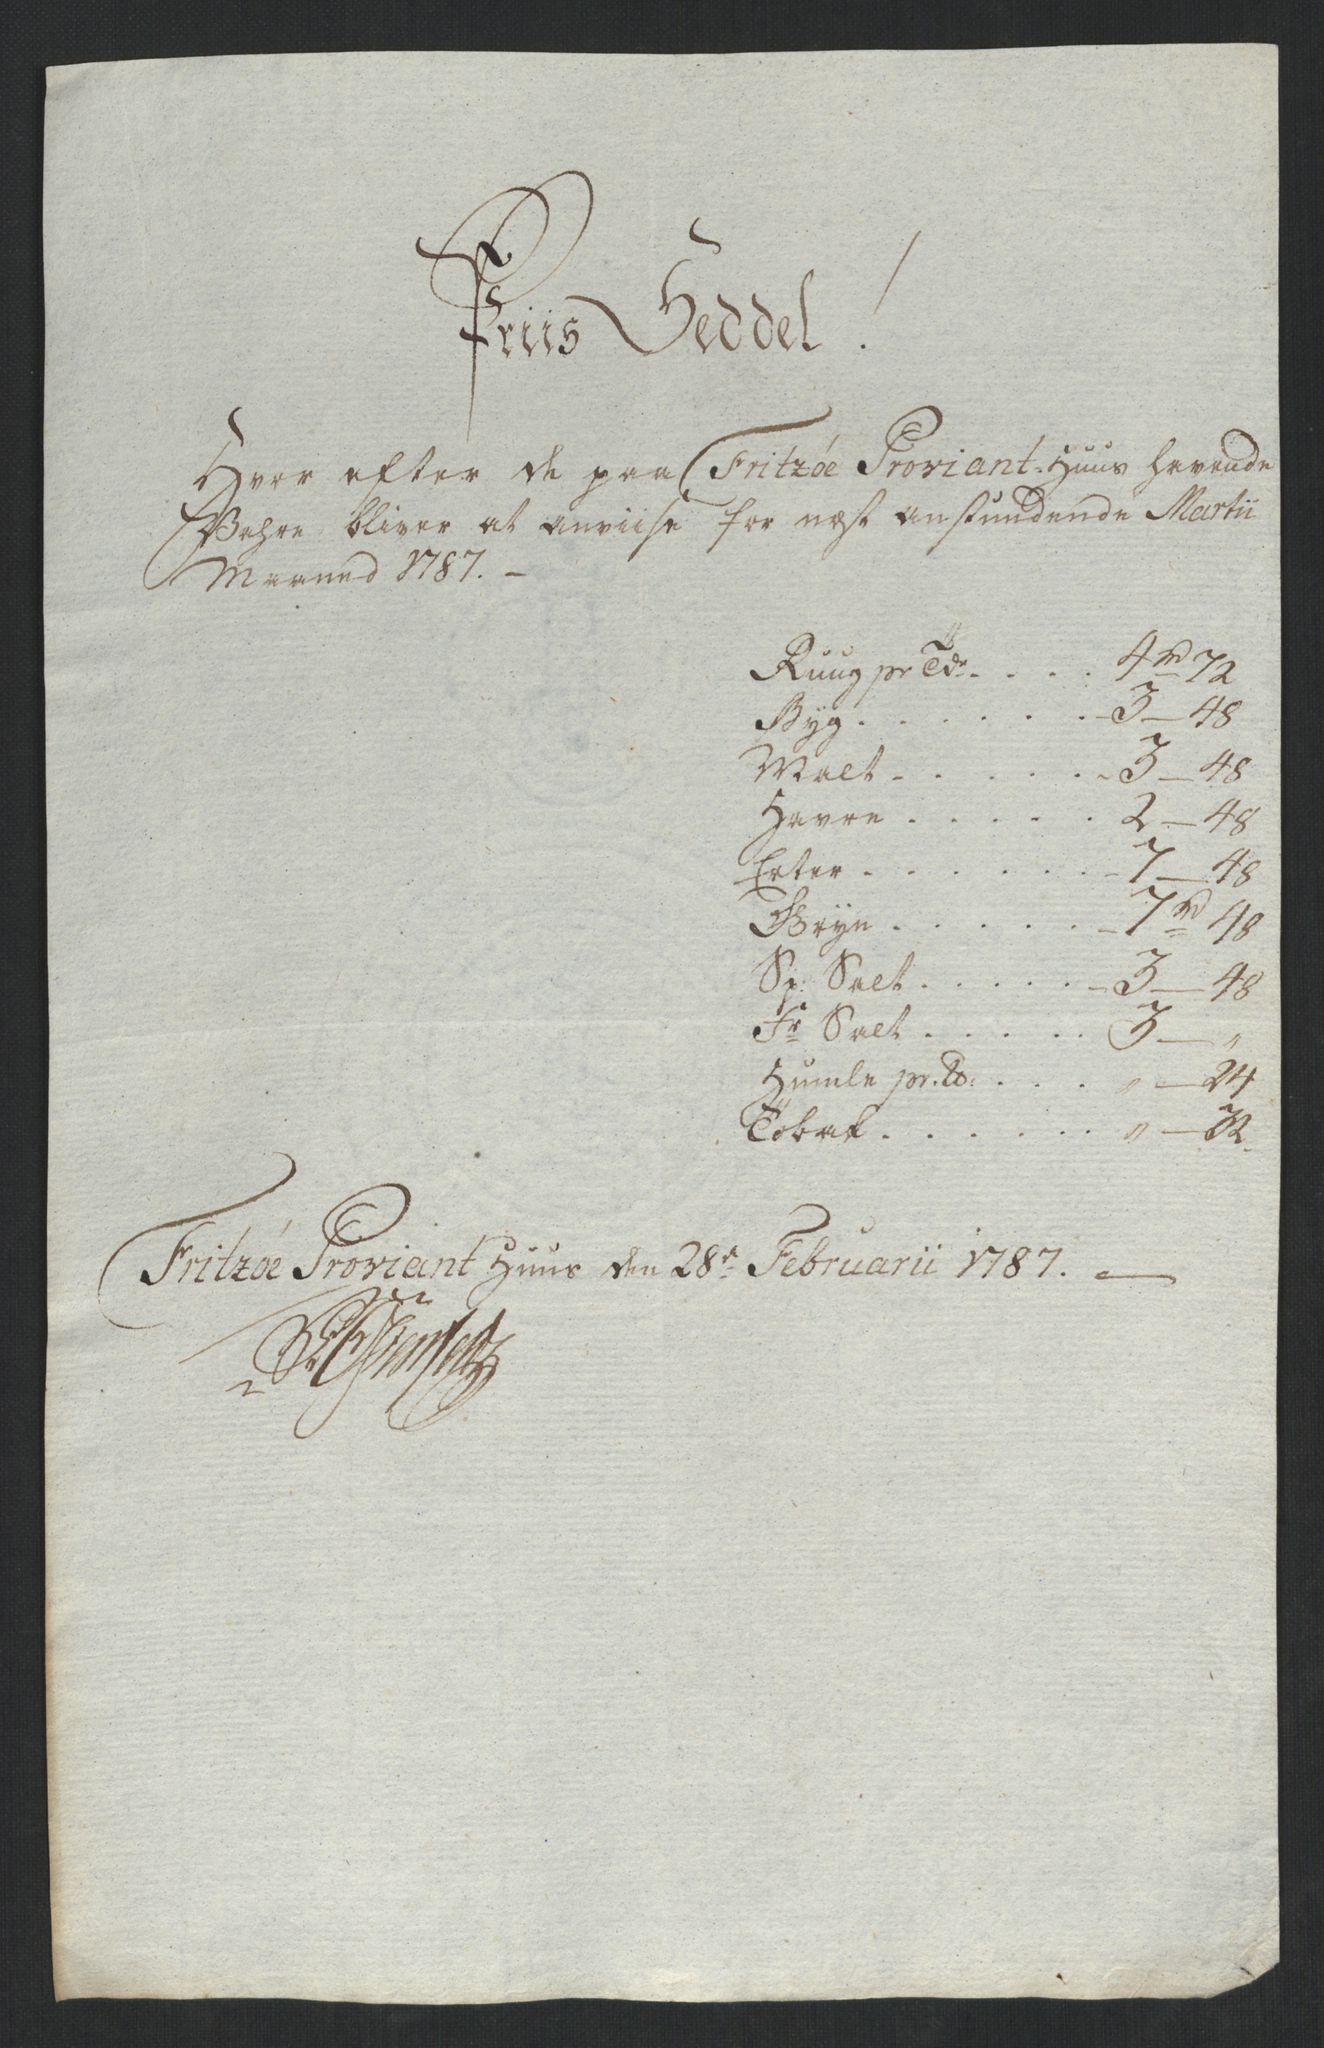 Priis Seddel!
Hvor efter de paa Fritzöe Proviant Huus havende
Vahre bliver at anviise for næst anstundende Martii
Maaned 1787. –
Ruug pr Tde . . . . 4 rd 72
Byg . . . . . . 3 — 48
Malt . . . . . 3 — 48
Havre . . . . . 2 — 48
Erter . . . . . . 7 — 48
Gryn . . . . . 7 rd 48
Sp: Salt . . . . . 3 — 48
Fr Salt . . . . . 3 — "
Humle pr. ℔: . . . " — 24
Tobak . . . . . . " — 32.
Fritzöe Proviant Huus den 28de Februarii 1787. —